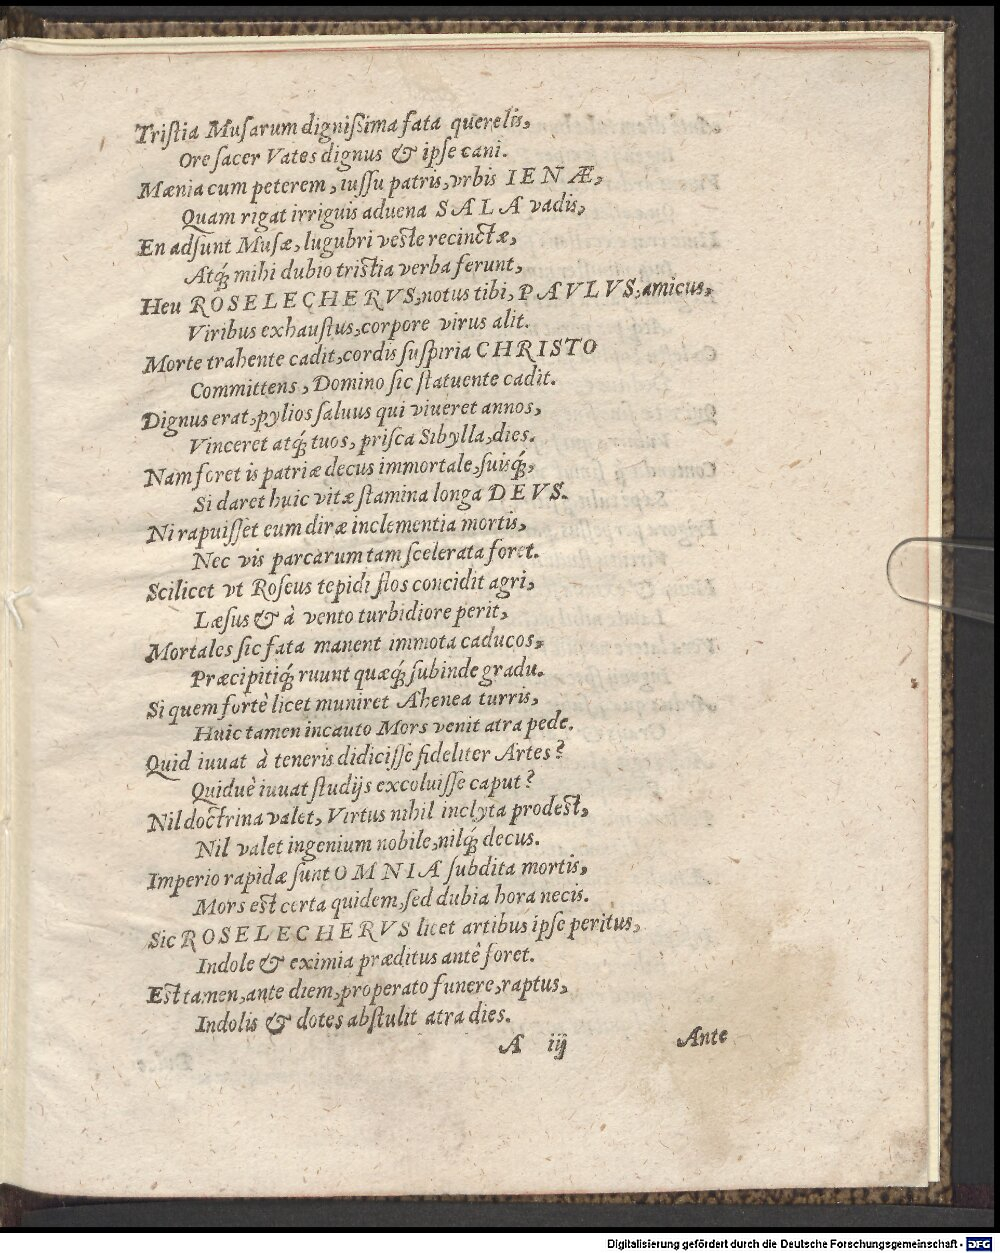 Tristia Musarum dignissima fata querelis,
Ore sacer Vates dignus & ipse cani.
Mœnia cum peterem, iussu patris, vrbis IENÆ,
Quam rigat irriguis aduena SALA vadis,
En adsunt Musæ, lugubri veste recinctæ,
Atq́; mihi dubio tristia verba ferunt,
Heu ROSELECHERVS, notus tibi, PAVLVS, amicus,
Viribus exhaustus, corpore virus alit.
Morte trahente cadit, cordis suspiria CHRISTO
Committens, Domino sic statuente cadit.
Dignus erat, pylios saluus qui viueret annos,
Vinceret atq́; tuos, prisca Sibylla, dies.
Nam foret is patriæ decus immortale, suisq́;,
Si daret huic vitæ stamina longa DEVS.
Ni rapuisset eum diræ inclementia mortis,
Nec vis parcarum tam scelerata foret.
Scilicet vt Roseus tepidi flos concidit agri,
Læsus & à vento turbidiore perit,
Mortales sic fata manent immota caducos,
Præcipitiq́; ruunt quæq́; subinde gradu.
Si quem fortè licet muniret Ahenea turris,
Huic tamen incauto Mors venit atra pede.
Quid iuuat à teneris didicisse fideliter Artes?
Quiduè iuuat studijs excoluisse caput?
Nil doctrina valet, Virtus nihil inclyta prodest,
Nil valet ingenium nobile, nilq́; decus.
Imperio rapidæ sunt OMNIA subdita mortis,
Mors est certa quidem, sed dubia hora necis.
Sic ROSELECHERVS licet artibus ipse peritus,
Indole & eximia præditus antè foret.
Est tamen, ante diem, properato funere, raptus,
Indolis & dotes abstulit atra dies.
A iij Ante
Digitalisierung gefördert durch die Deutsche Forschungsgemeinschaft - DFG